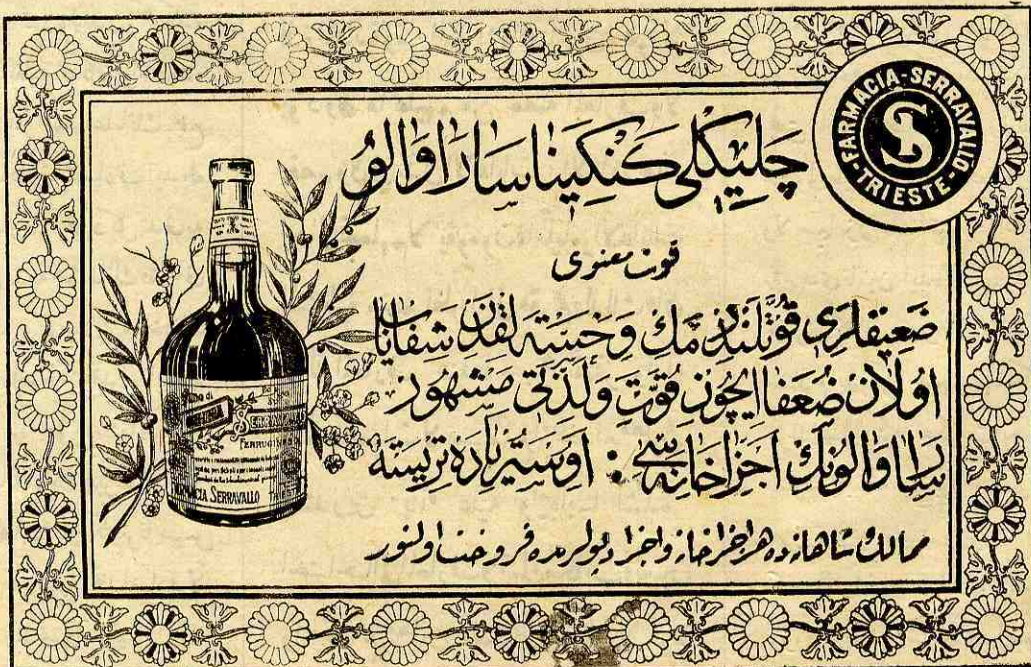 FARMACIA-SERRAVALLO
TRIESTE
S
چلیكلی كنكینا سارا والو
قوت معنوی
ضعیفلری قوتلندرمك و خسته لقدن شفایاب
اولان ضعفا ایچون قوت ولذتی مشهور
سراوالونك اجزاخانه سی : اوستریاده تریسته
ممالك شاهانه ده هر اجزاخانه و اجزا دپولرنده فروخت اولنور
SERRAVALLO
FERRUGINOSO
FARMACIA SERRAVALLO TRIESTE